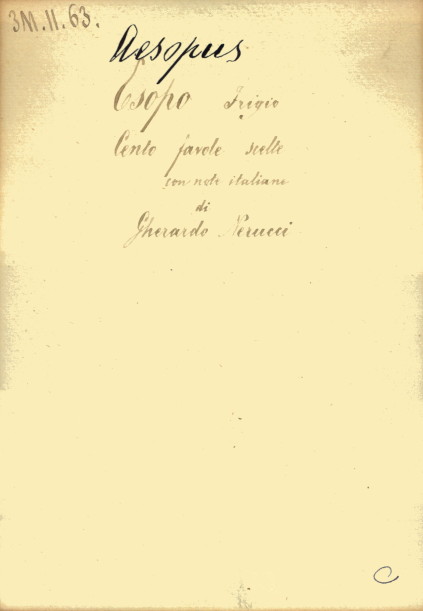 3M.II.63.
Aesopus
Esopo Frigio
Cento favole scelte
con note italiane
di
Gherardo Nerucci
C